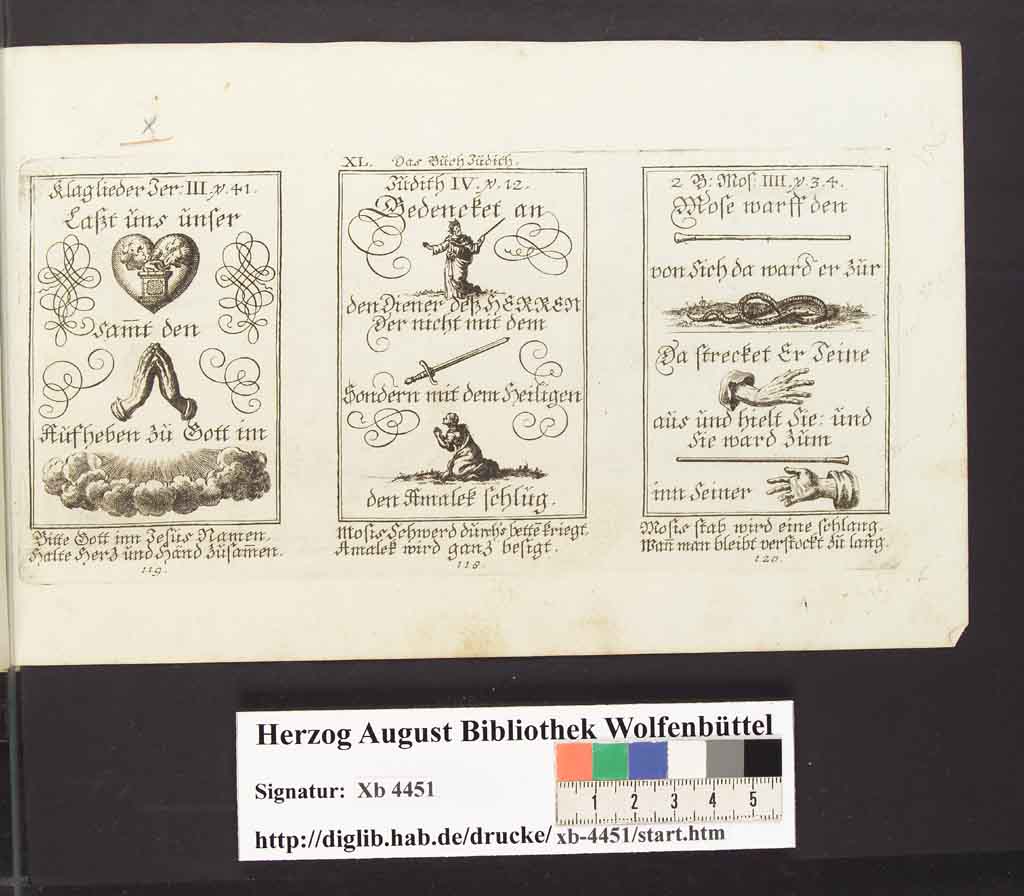 X
Klaglieder Jer: III. v. 41.
Laßt uns unser
samt den
Aufheben zu Gott im
Bitte Gott inn Jesus Namen.
Halte Herz und Hand zusamen.
119.
XL. Das Buch Judith.
Judith IV. v. 12.
Bedencket an
den Diener deß HERREN
Der nicht mit dem
Sondern mit dem Heiligen
den Amalek schlug.
Mosis Schwerd durchs bette kriegt.
Amalek wird ganz besigt.
118.
2 B: Mos: IIII. v. 3. 4.
Mose warff den
von sich da ward er zur
Da strecket Er Seine
aus und hielt Sie: und
Sie ward zum
inn Seiner
Mosis stab wird eine schlang.
Wan̄ man bleibt verstockt zu lang.
120.
Herzog August Bibliothek Wolfenbüttel
Signatur: Xb 4451
1 2 3 4 5
http://diglib.hab.de/drucke/ xb-4451/start.htm